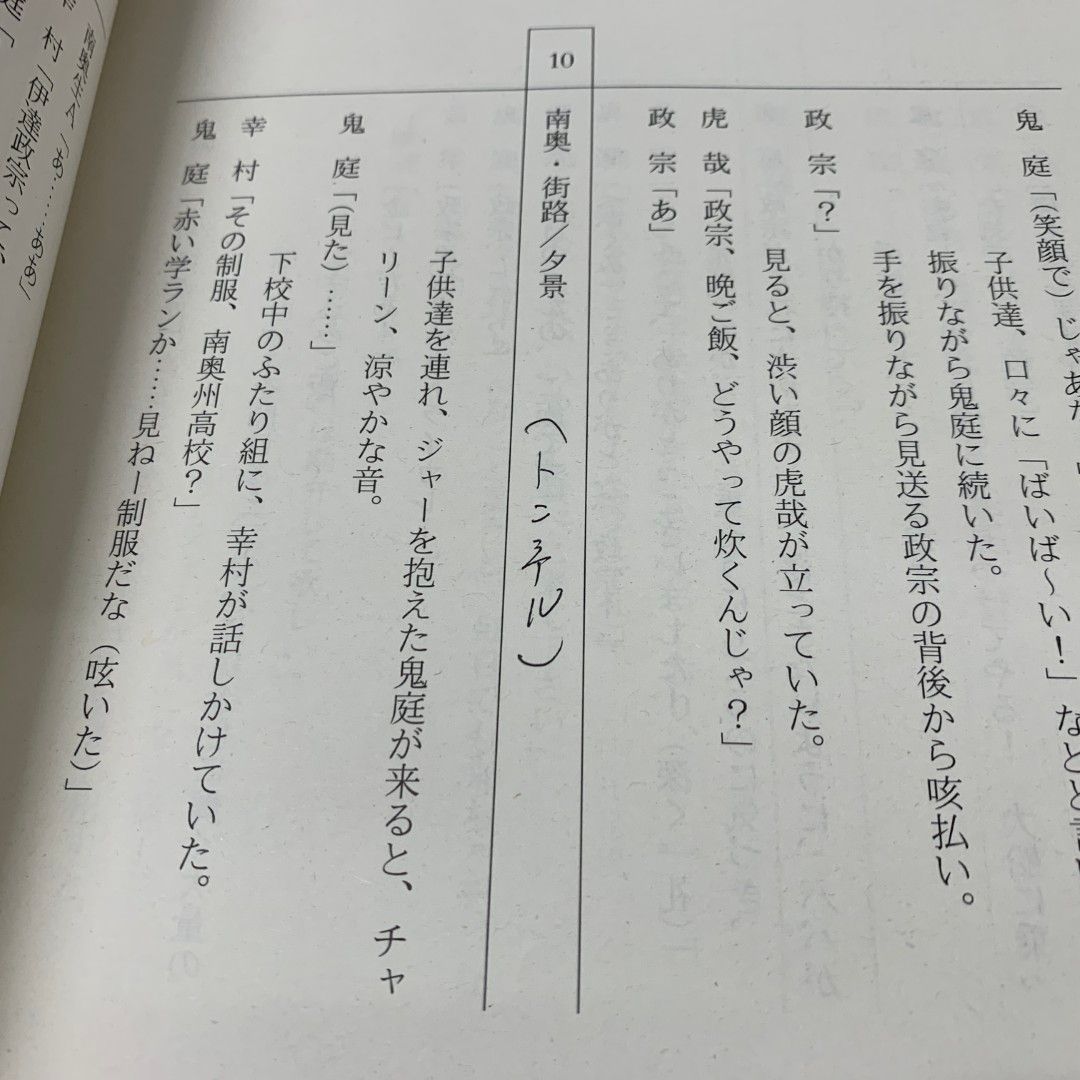 鬼 庭「(笑顔で)じゃあな
子供達、口々に「ばいば〜い!」などと言い
振りながら鬼庭に続いた。
手を振りながら見送る政宗の背後から咳払い。
政 宗「?」
見ると、渋い顔の虎哉が立っていた。
虎 哉「政宗、晩ご飯、どうやって炊くんじゃ?」
政 宗「あ」
10
南奥・街路/夕景
(トンデル)
子供達を連れ、ジャーを抱えた鬼庭が来ると、チャ
リーン、涼やかな音。
鬼 庭「(見た)……」
下校中のふたり組に、幸村が話しかけていた。
幸 村「その制服、南奥州高校?」
鬼 庭「赤い学ランか……見ねー制服だな(呟いた)」
村「伊達政宗って